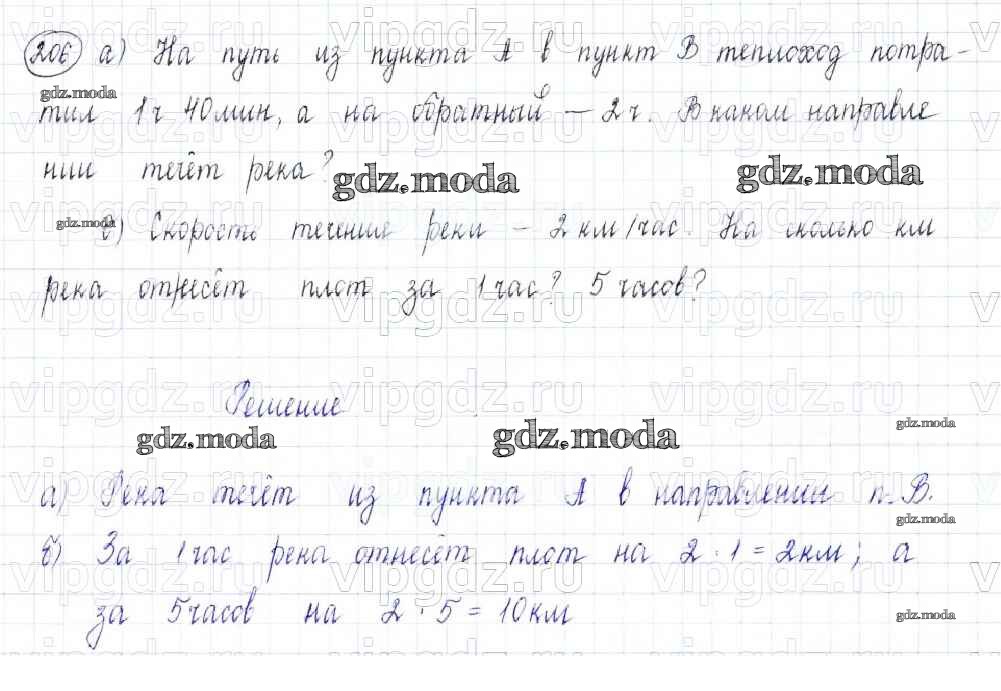 206 а) На путь из пункта А в пункт В теплоход потра-
тил 1ч 40мин, а на обратный – 2ч. В каком направле
нии течёт река?
б) Скорость течения реки – 2 км/час. На сколько км
река отнесёт плот за 1 час? 5 часов?
Решение
а) Река течёт из пункта А в направлении п. В.
б) За 1 час река отнесёт плот на 2 · 1 = 2км; а
за 5 часов на 2 · 5 = 10км
gdz.moda
vipgdz.ru